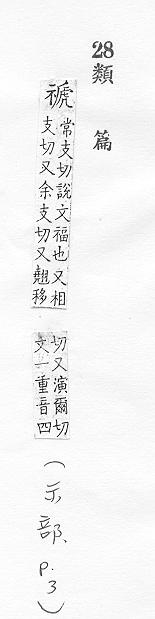 28 類篇
禠
常支切說文福也又相
支切又余支切又翹移
切又演爾切
文一重音四
(示部 p.3)